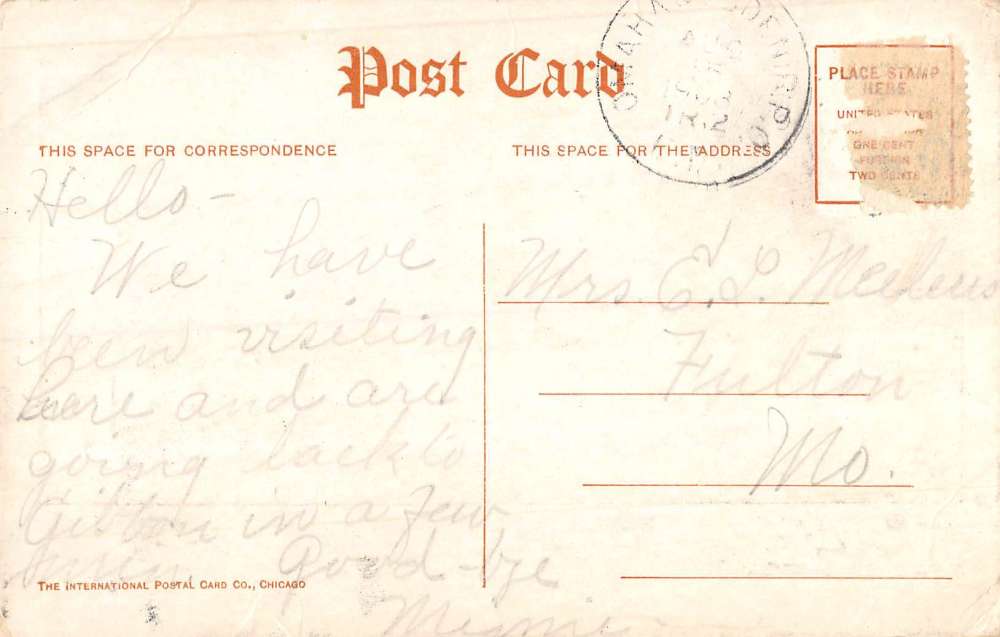 Post Card
PLACE STAMP
HERE.
UNITED STATES
ONE CENT
FOREIGN
TWO CENTS
OMAHA
AUG
TR.2
THIS SPACE FOR CORRESPONDENCE
THIS SPACE FOR THE ADDRESS
Hello-
We have
been visiting
here and are
going back to
Gibbon in a few
Good-bye
Mrs. E. L.
Fulton
Mo.
THE INTERNATIONAL POSTAL CARD CO., CHICAGO